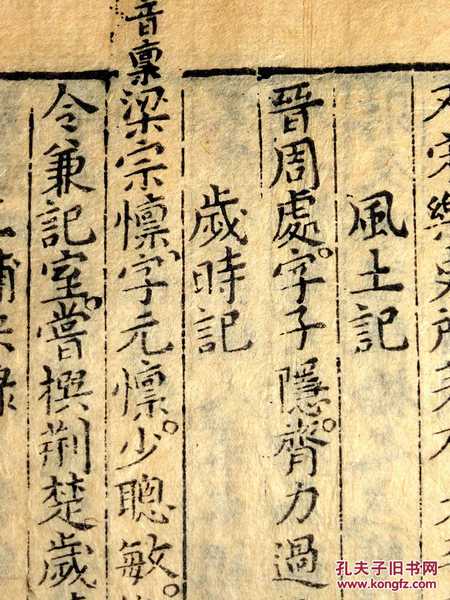 風土記
晉周處。字子隱。膂力過
歲時記
音禀
梁宗懍、字元懍。少聰敏。
令兼記室。嘗撰荊楚歲
孔夫子旧书网
www.kongfz.com